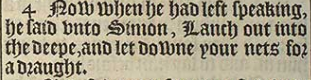 4 Now when he had left speaking,
he said vnto Simon, Lanch out into
the deepe, and let downe your nets for
a draught.